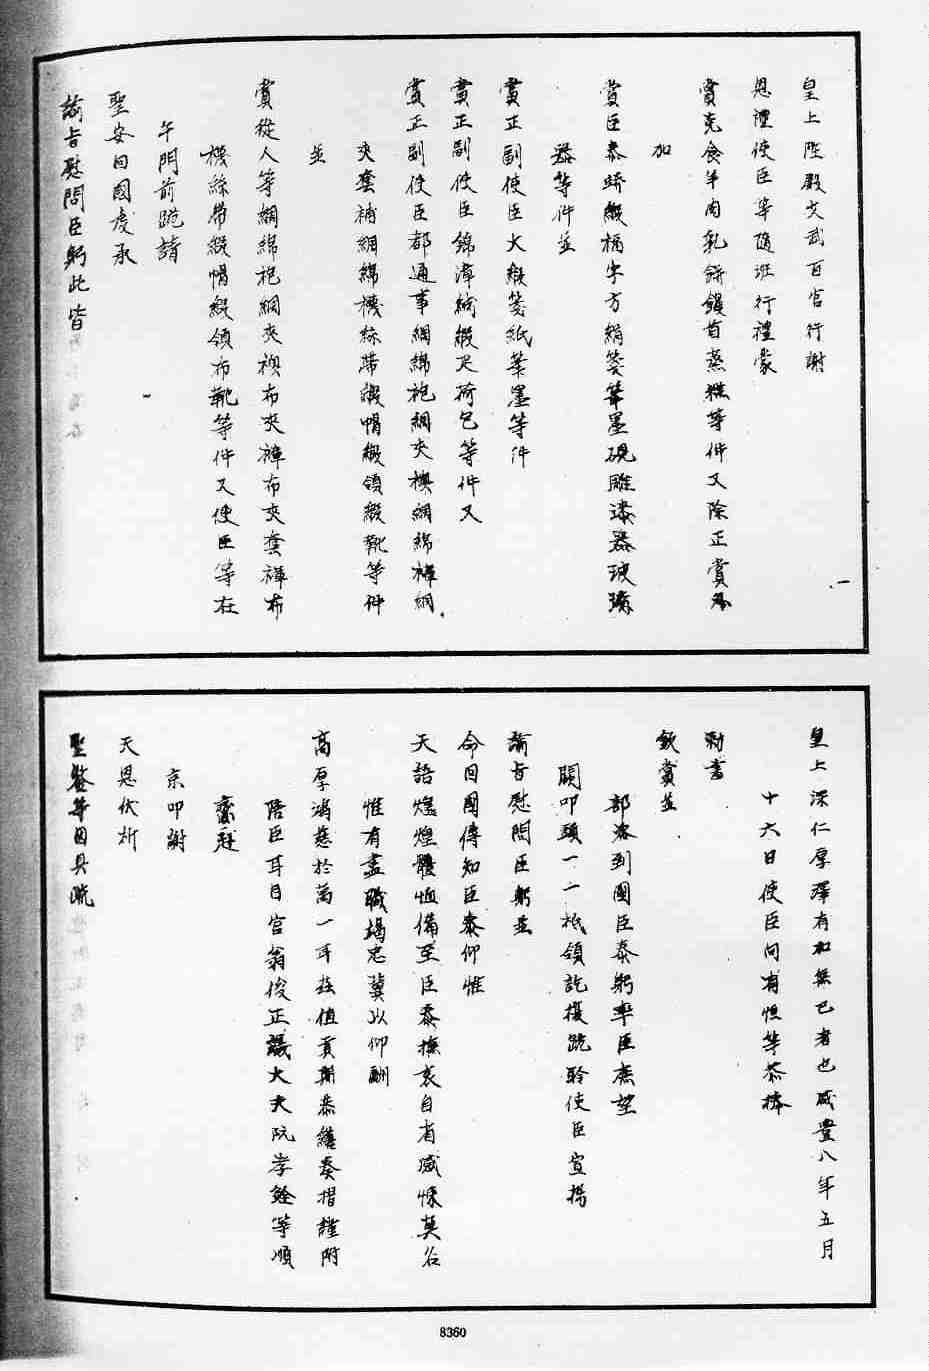 皇上陞殿文武百官行謝
恩禮使臣等隨班行禮蒙
賞克食羊肉乳餅饅首蒸糕等件又除正賞外
加
賞臣泰蟒緞福字方絹箋筆墨硯雕漆器玻璃
器等件並
賞正副使臣大緞箋紙筆墨等件
賞正副使臣錦漳絨緞疋荷包等件又
賞正副使臣都通事綢綿袍綢夾襖綢綿褲綢
夾套褲綢綿機絲帶緞帽緞領緞靴等件
並
賞從人等綢綿袍綢夾襖布夾褲布夾套褲布
機絲帶緞帽緞領布靴等件又使臣等在
午門前跪請
聖安回國虔承
諭旨慰問臣躬此皆
皇上深仁厚澤有加無已者也咸豐八年五月
十六日使臣向有恒等恭捧
勅書
欽賞並
部咨到國臣泰躬率臣庶望
闕叩頭一一祇領訖復跪聆使臣宣揚
諭旨慰問臣躬並
命回國傳知臣泰仰惟
天語煌煌體恤備至臣泰撫衷自省感慄莫名
惟有盡職竭忠冀以仰酬
高厚鴻慈於萬一耳茲值貢期恭繕奏摺謹附
陪臣耳目官翁俊正議大夫阮孝銓等順
齎赴
京叩謝
天恩伏祈
聖鑒等因具疏
8360